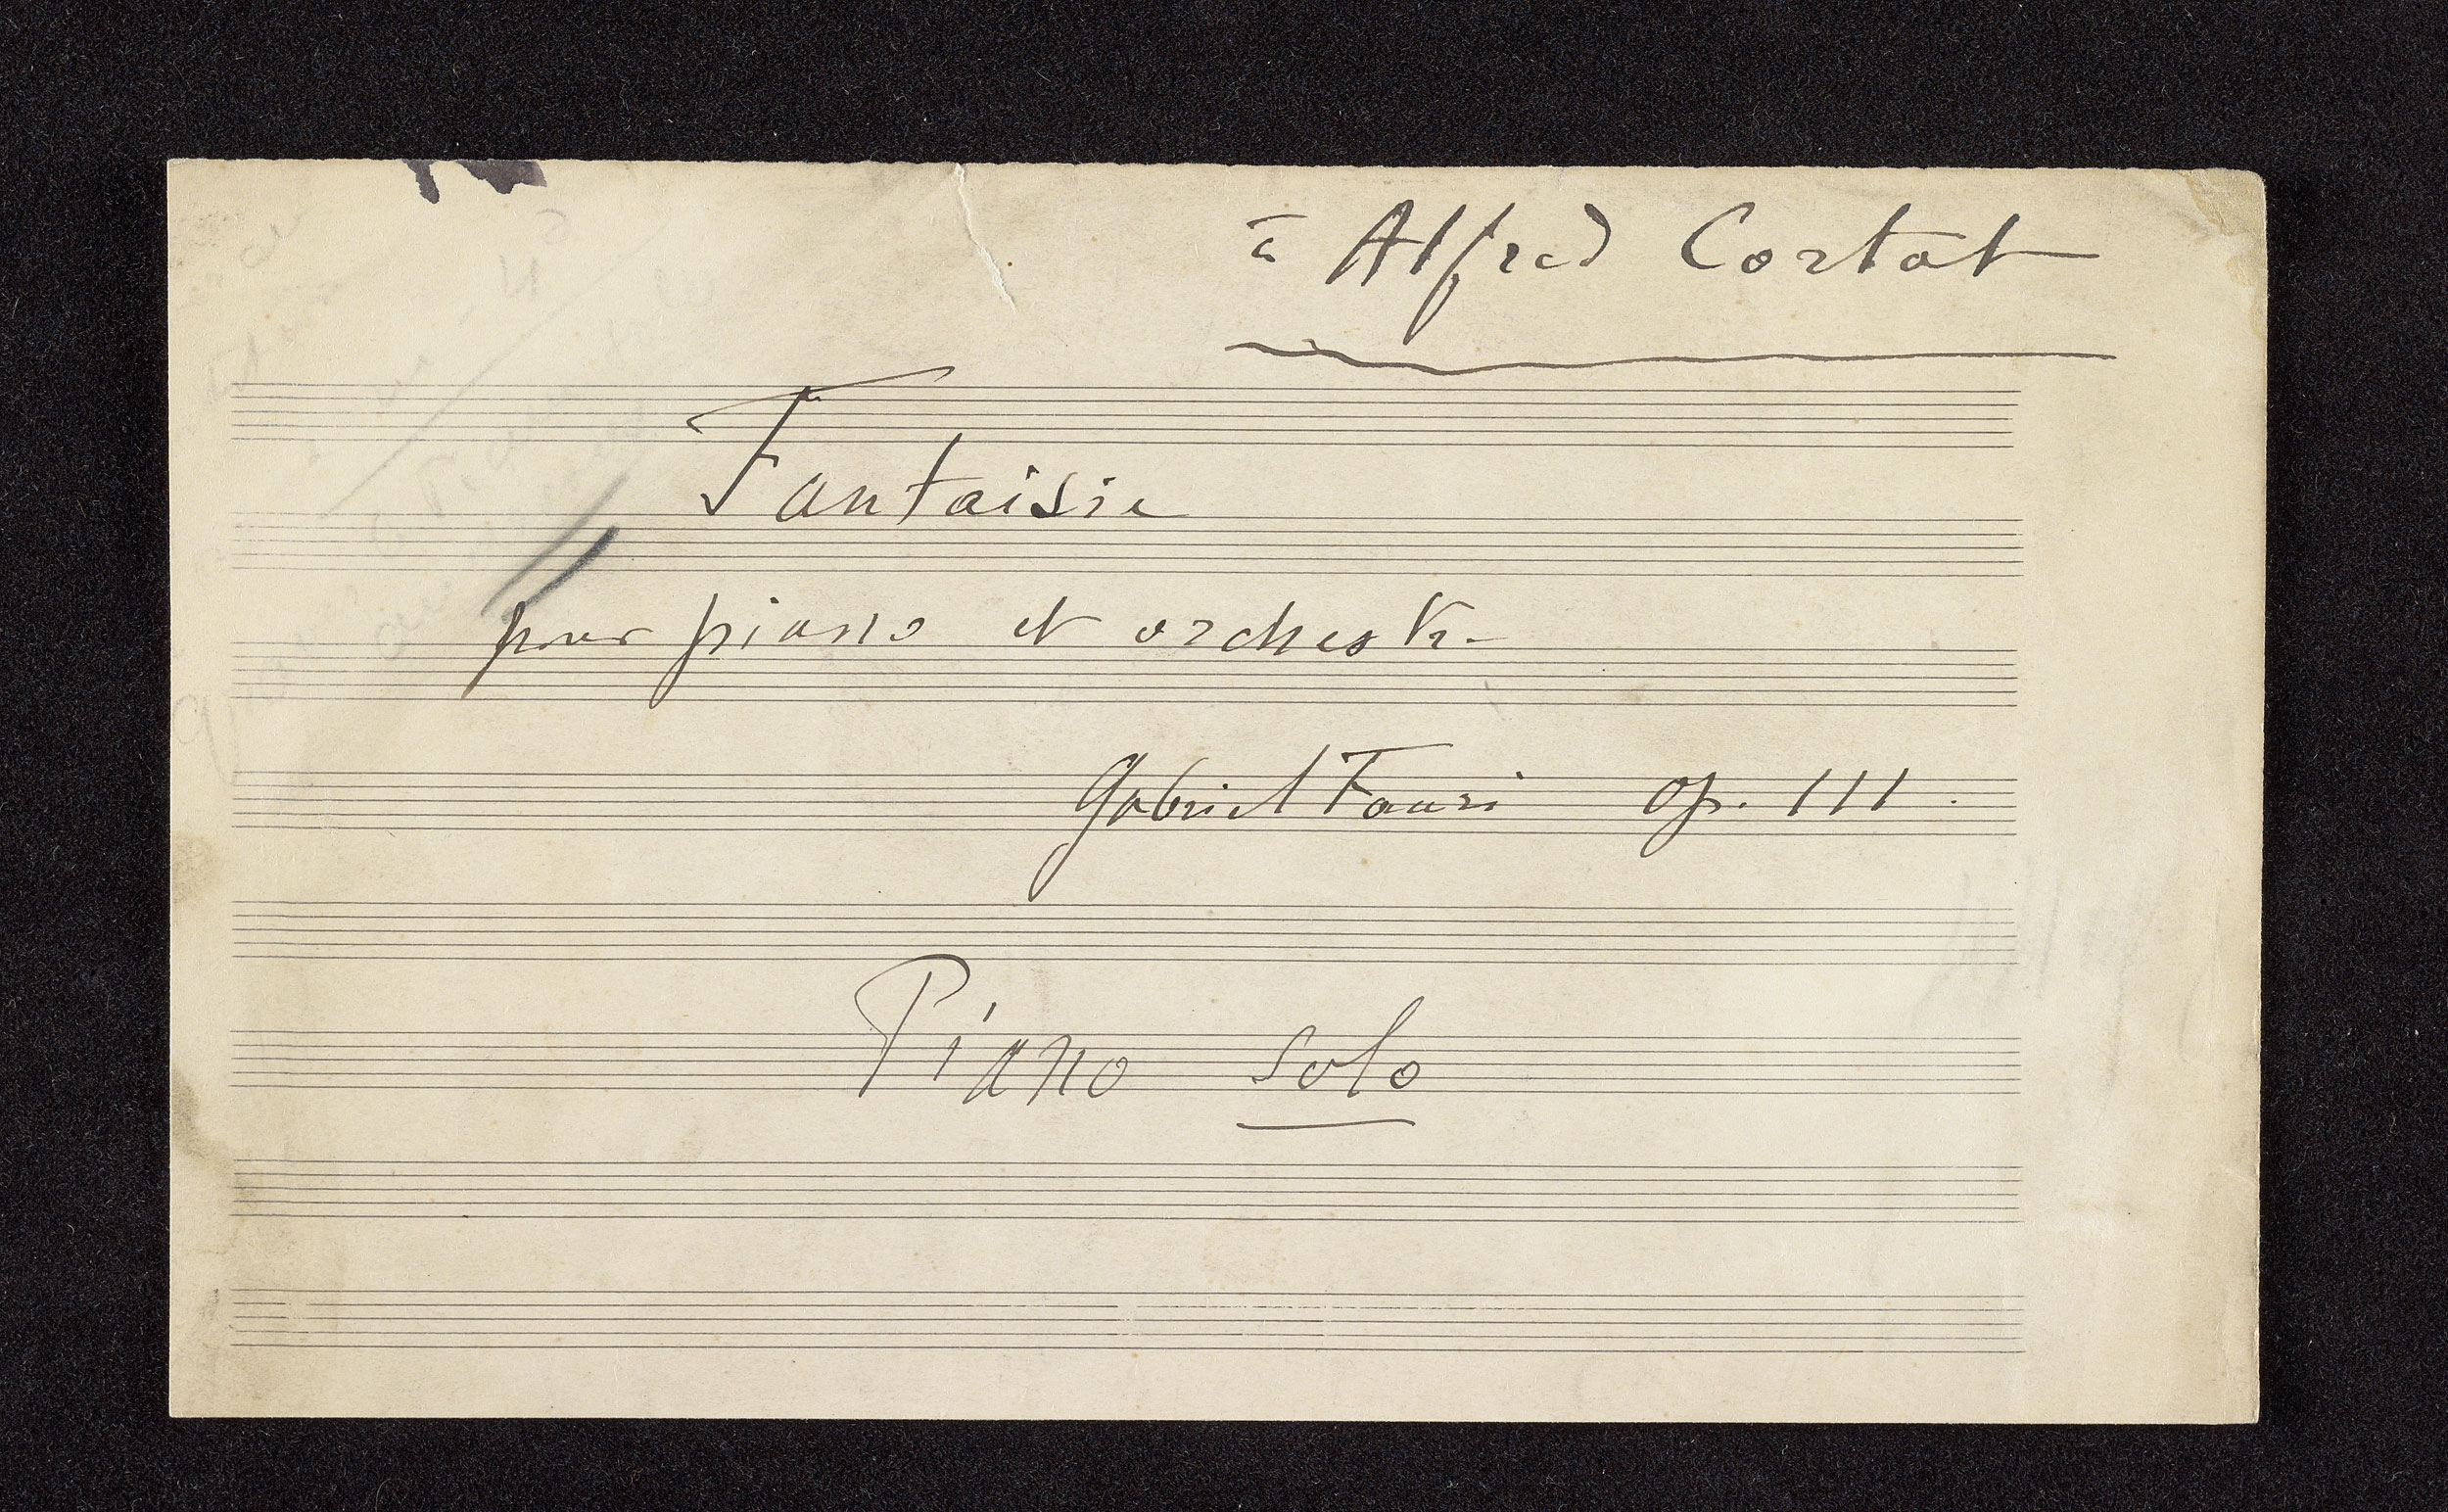 à Alfred Cortot
Fantaisie
pour piano et orchestre
Gabriel Fauré op. 111.
Piano solo